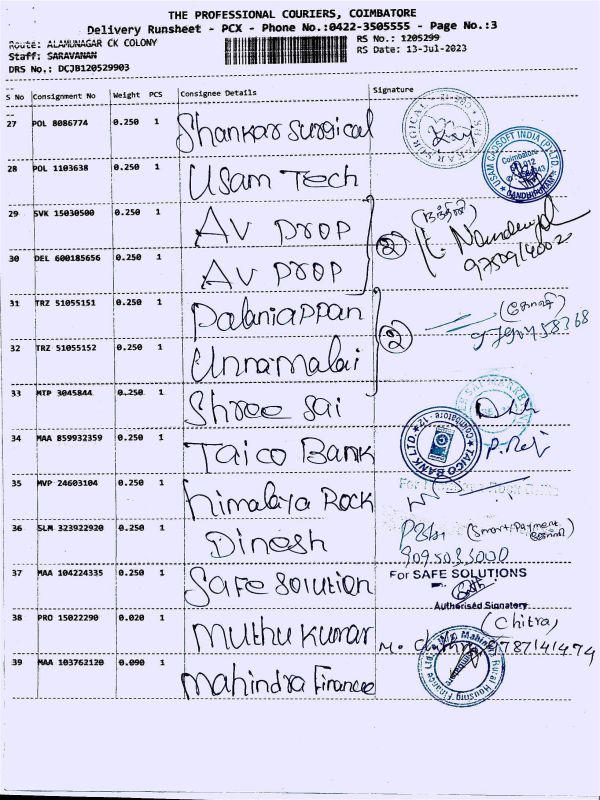 THE PROFESSIONAL COURIERS, COIMBATORE
Delivery Runsheet - PCX - Phone No.:0422-3505555 - Page No.:3
Route: ALAMUNAGAR CK COLONY
RS No.: 1205299
Staff: SARAVANAN
RS Date: 13-Jul-2023
DRS No.: DCJB120529903
S No Consignment No Weight PCS Consignee Details Signature
27 POL 8086774 0.250 1 Shankar Surgical
28 POL 1103638 0.250 1 Usam Tech
USAM CADSOFT INDIA (P) LTD
Coimbatore
GANDHIPURAM
29 SVK 15030500 0.250 1 AV PROP
30 DEL 600185656 0.250 1 AV PROP
②
31 TRZ 51055151 0.250 1 Palaniappan
32 TRZ 51055152 0.250 1 Unnamalai
②
33 MTP 3045844 0.250 1 Shree Sai
34 MAA 859932359 0.250 1 Taico Bank
TAICO BANK LTD. Coimbatore - 12
35 MVP 24603104 0.250 1 himalaya Rock
36 SLM 323922920 0.250 1 Dinesh
(Smart Payment
37 MAA 104224335 0.250 1 Safe Solution
For SAFE SOLUTIONS
Authorised Signatory
38 PRO 15022290 0.020 1 muthu kumar
(Chitra)
9787141474
39 MAA 103762120 0.090 1 mahindra Finance
Rural Housing Finance Ltd.